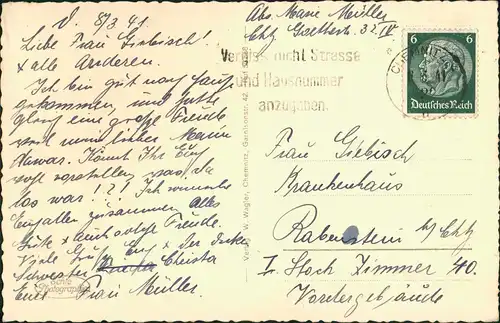 d. 8/3.41.
Liebe Frau Giebisch!
+ alle Anderen.
Ich bin gut nach Hause
gekommen und hatte
gleich eine große Freude
weil mein lieber Mann
da war. Könnt Ihr Euch
wohl vorstellen was da
los war!?! Ich wünsche
Euch allen zusammen alles
Gute + auch solche Freude.
Viele Grüße Euch + der
Schwester Christa
Eure Frau Müller.
Echte
Photographie
Verlag W. Wagler, Chemnitz, Garnisonstr. 42,
Abs. Marie Müller
Chtz. 32 IV
Vergiss nicht Strasse
und Hausnummer
anzugeben.
CHEMNITZ
6 6
Deutsches Reich
Frau Giebisch
Krankenhaus
Rabenstein b/Chtz
I. Stock Zimmer 40.
Vordergebäude